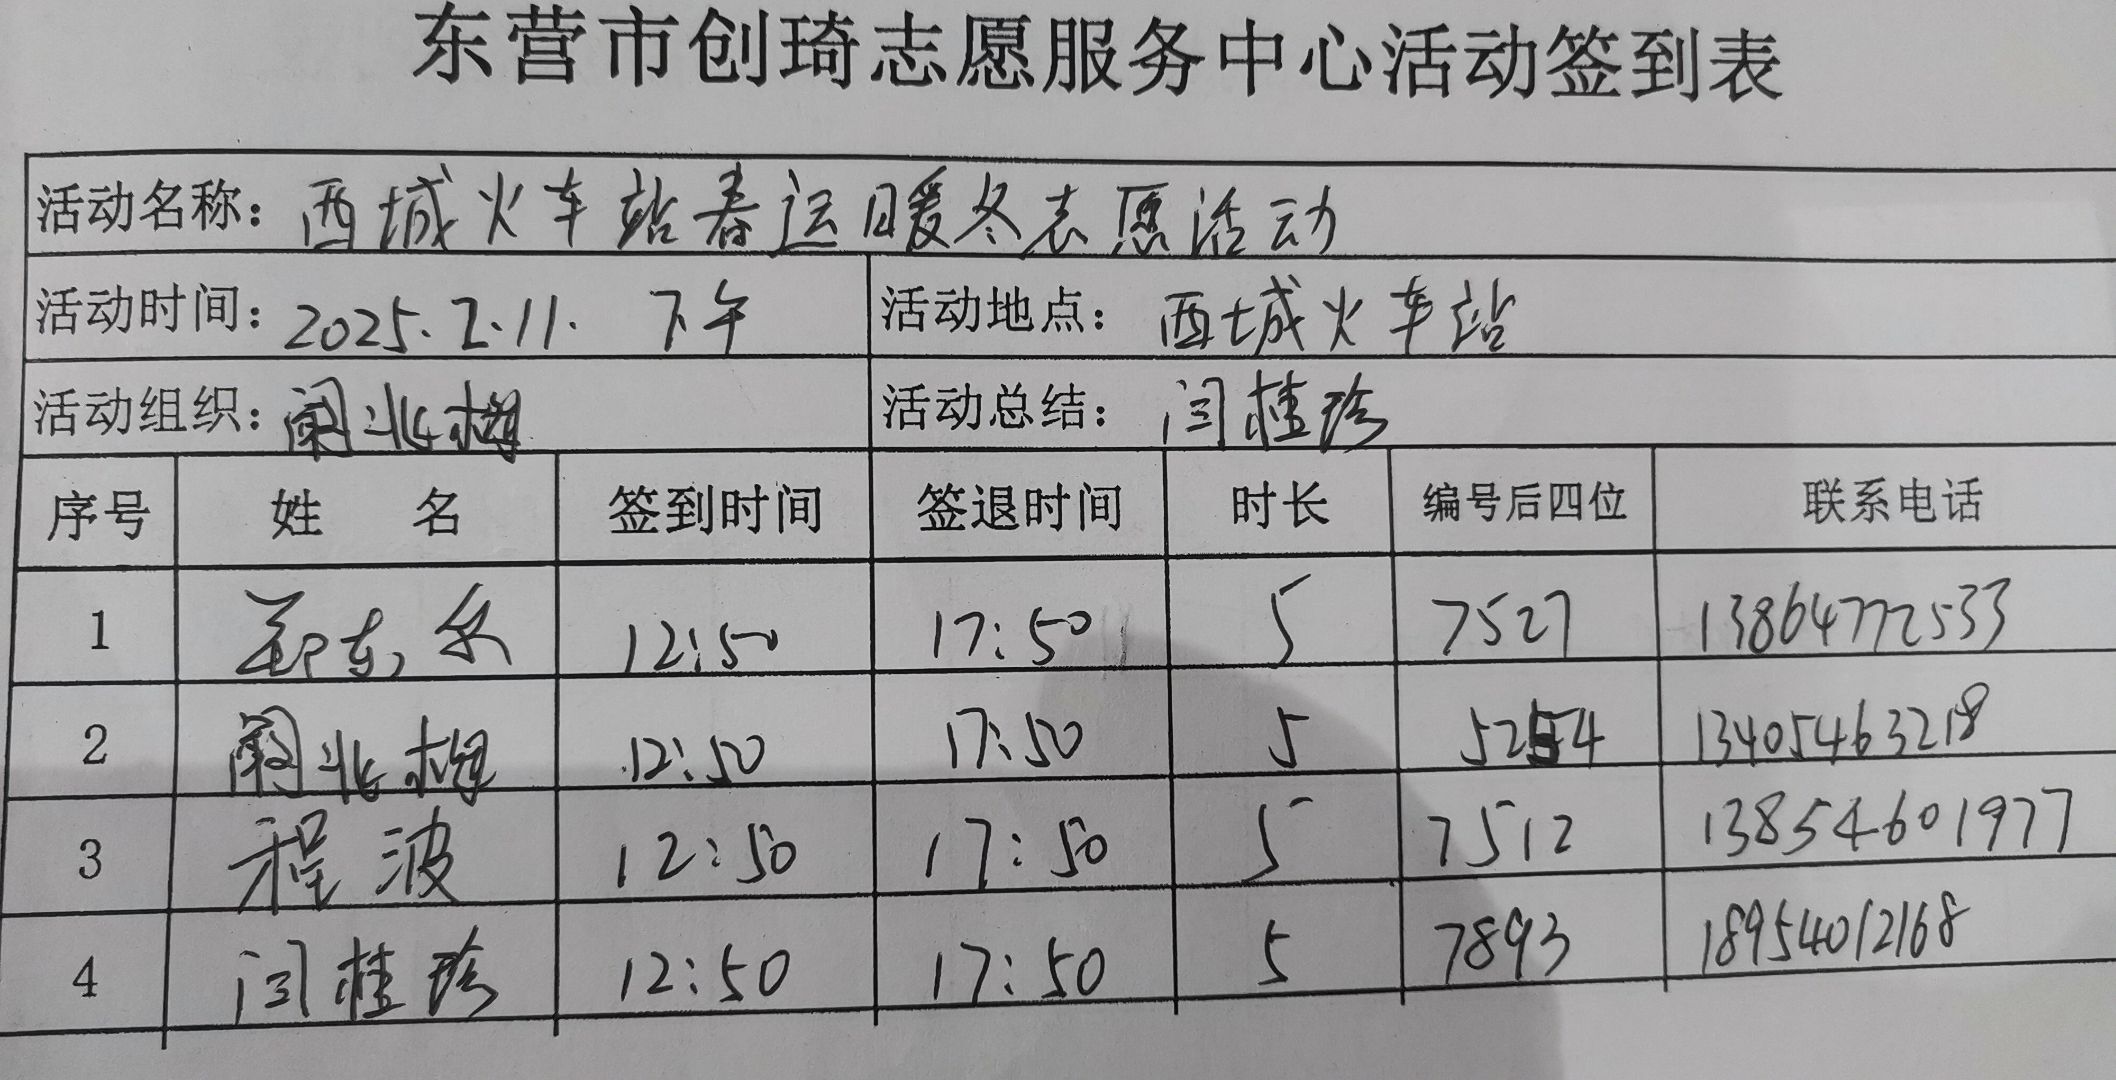 东营市创琦志愿服务中心活动签到表
活动名称: 西城火车站春运暖冬志愿活动
活动时间: 2025.2.11. 下午 活动地点: 西城火车站
活动组织: 阚兆梅 活动总结: 闫桂珍
序号 姓 名 签到时间 签退时间 时长 编号后四位 联系电话
1 12:50 17:50 5 7527 13864772533
2 阚兆梅 12:50 17:50 5 5254 13405463218
3 程波 12:50 17:50 5 7512 13854601977
4 闫桂珍 12:50 17:50 5 7893 18954012168